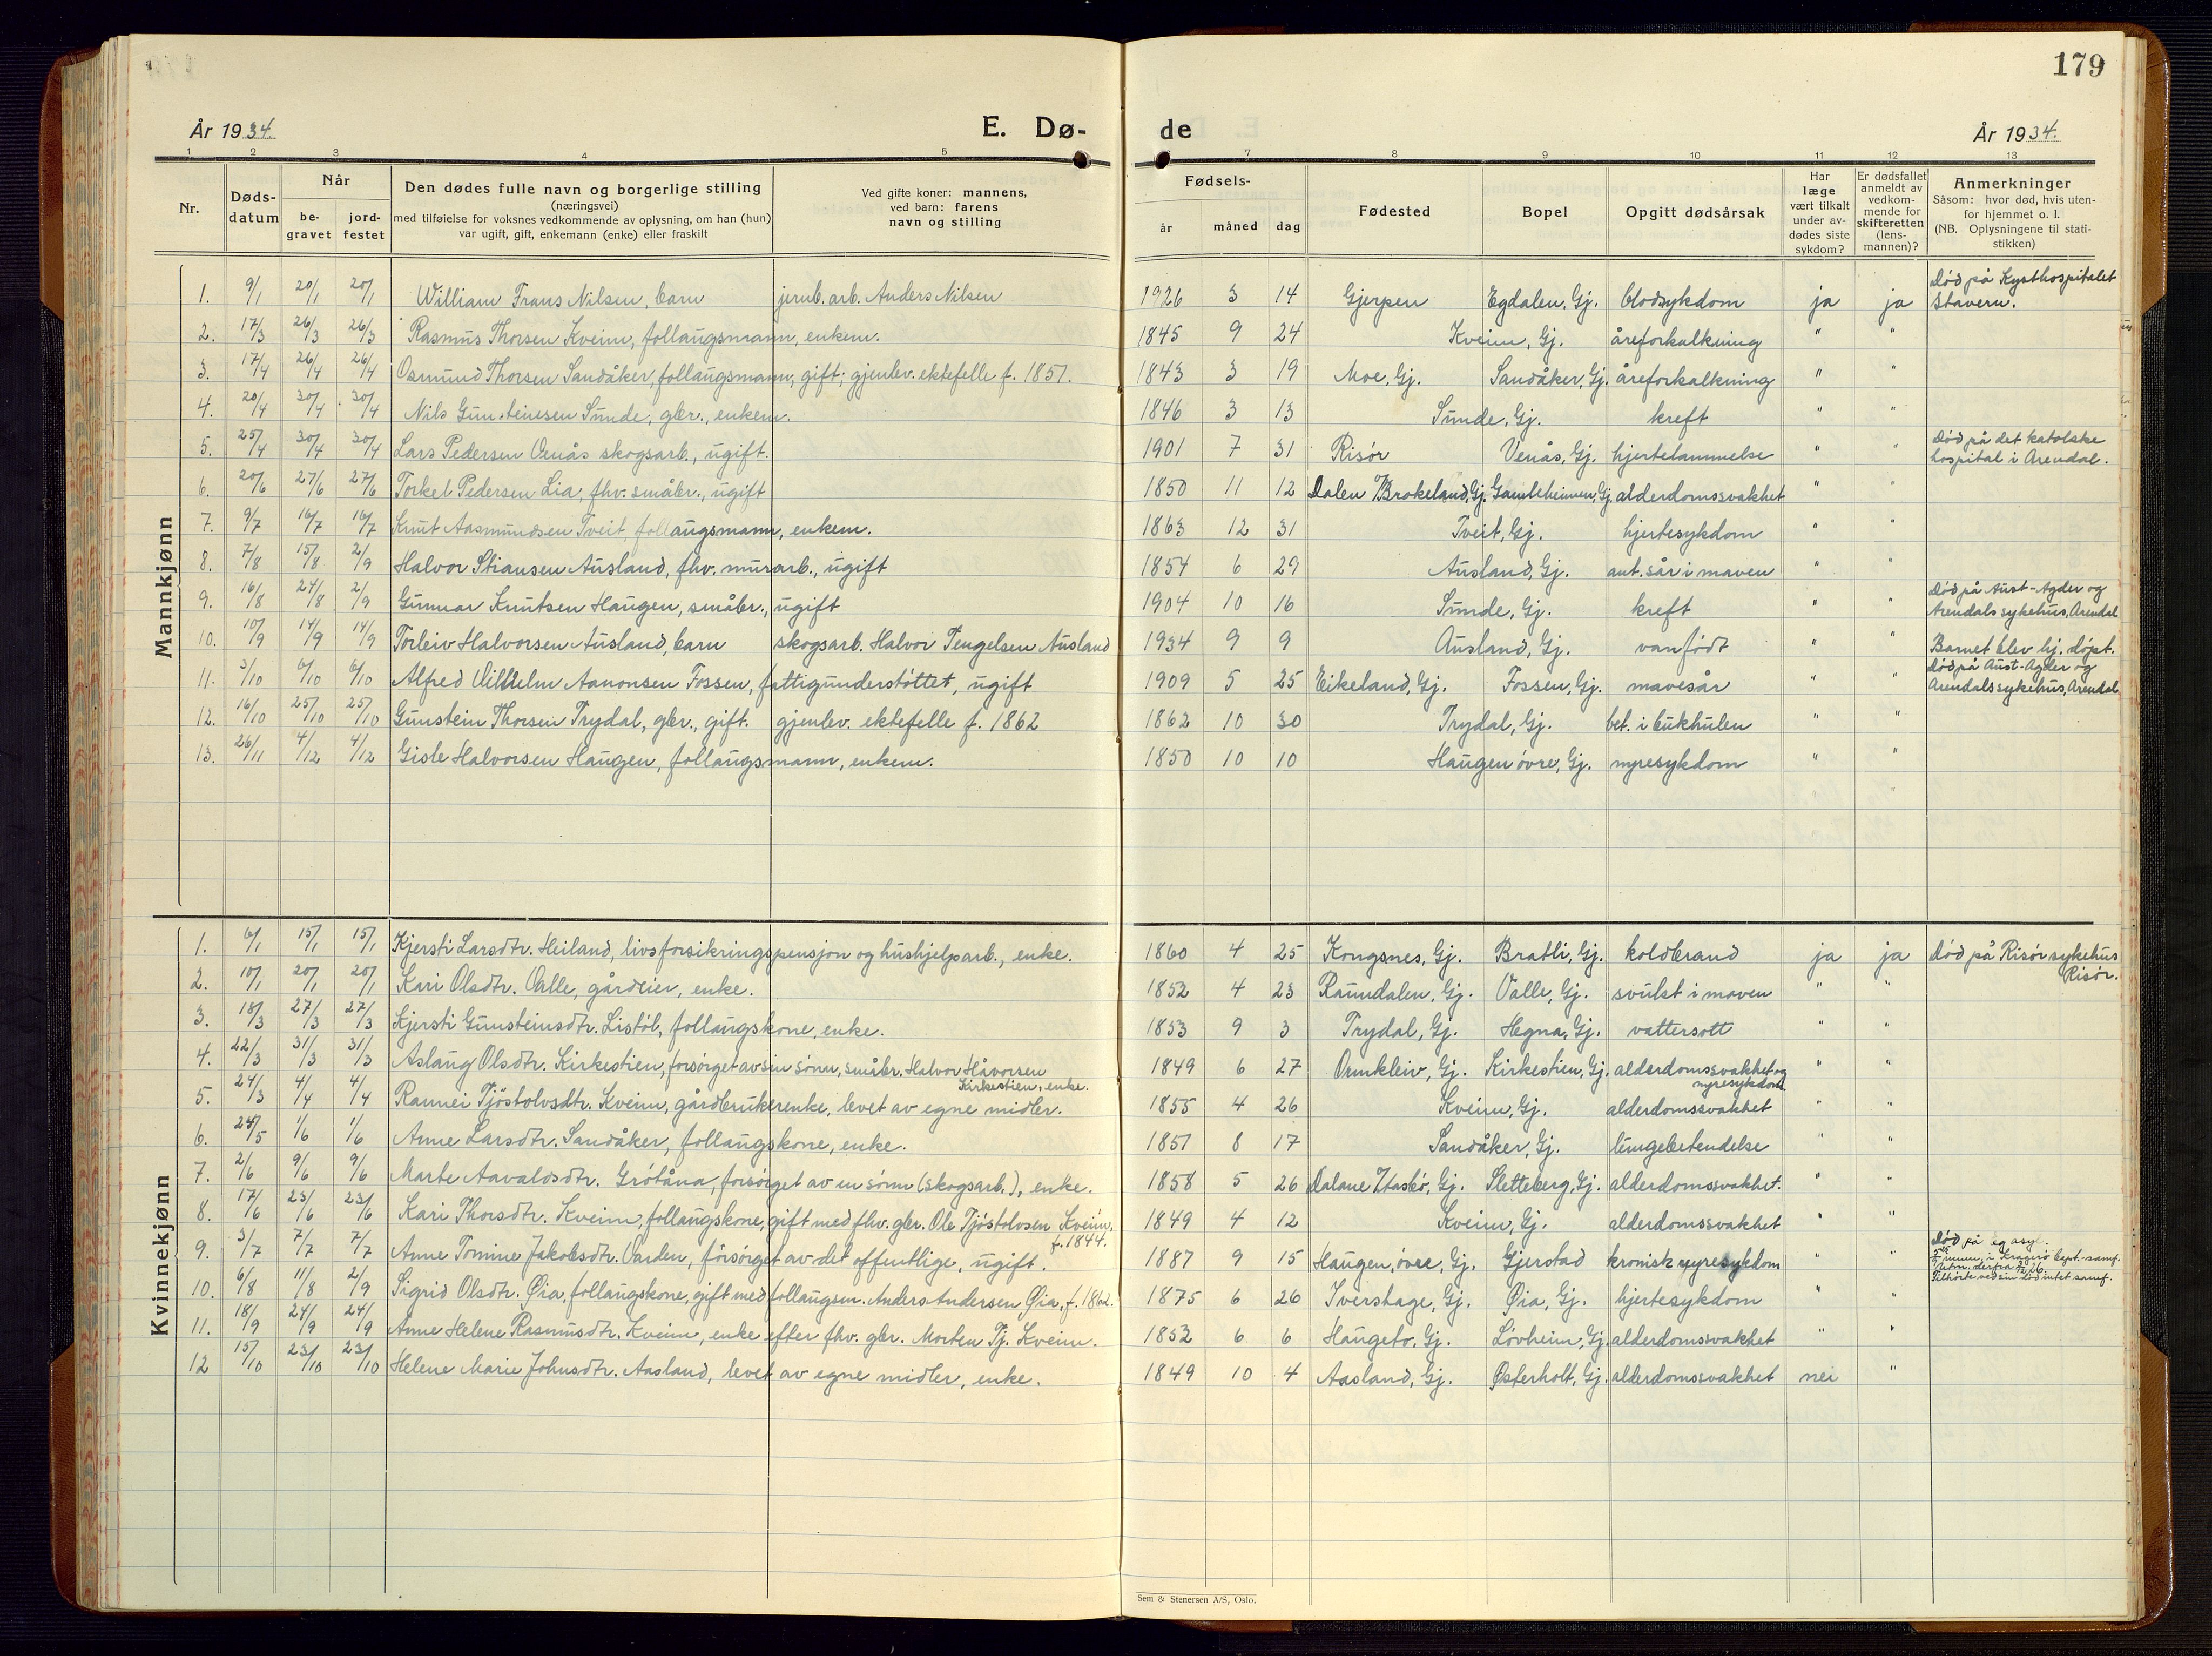 179
År 1934.
E. Dø-
de
År 1934.
1 2 3 4 5 7 8 9 10 11 12 13
Nr.
Døds-
datum
Når
be-
gravet
jord-
festet
Den dødes fulle navn og borgerlige stilling
(næringsvei)
med tilføielse for voksnes vedkommende av oplysning, om han (hun)
var ugift, gift, enkemann (enke) eller fraskilt
Ved gifte koner: mannens,
ved barn: farens
navn og stilling
Fødsels-
år måned dag
Fødested
Bopel
Opgitt dødsårsak
Har
læge
vært tilkalt
under av-
dødes siste
sykdom?
Er dødsfallet
anmeldt av
vedkom-
mende for
skifteretten
(lens-
mannen)?
Anmerkninger
Såsom: hvor død, hvis uten-
for hjemmet o. l.
(NB. Oplysningene til stati-
stikken)
Mannkjønn
1. 9/1 20/1 20/1 William Frans Nilsen, barn jernb. arb. Anders Nilsen 1926 3 14 Gjerpen Egdalen, Gj. blodsykdom ja ja Død på Kysthospitalet
Stavern.
2. 17/3 26/3 26/3 Rasmus Thorsen Kveim, follaugsmann, enkem. 1845 9 24 Kveim, Gj. åreforkalkning " "
3. 17/4 26/4 26/4 Osmund Thorsen Sandåker, follaugsmann, gift; gjenlev. ektefelle f. 1851. 1843 3 19 Moe, Gj. Sandåker, Gj. åreforkalkning " "
4. 20/4 30/4 30/4 Nils Gunsteinsen Sunde, gbr., enkem. 1846 3 13 Sunde, Gj. kreft " "
5. 25/4 30/4 30/4 Lars Pedersen Venås skogsarb., ugift. 1901 7 31 Risör Venås, Gj. hjertelammelse " " Död på det katolske
hospital i Arendal.
6. 20/6 27/6 27/6 Torkel Pedersen Lia, fhv. småbr., ugift 1850 11 12 Dalen /Brokeland, Gj. Gamleheimen, Gj. alderdomssvakhet " "
7. 9/7 16/7 16/7 Knut Aasmundsen Tveit, follaugsmann, enkem. 1863 12 31 Tveit, Gj. hjertesykdom " "
8. 7/8 15/8 2/9 Halvor Stiansen Ausland, fhv. murarb., ugift 1854 6 29 Ausland, Gj. ant. sår i maven " "
9. 16/8 24/8 2/9 Gunnar Knutsen Haugen, småbr., ugift 1904 10 16 Sunde, Gj. kreft " " Död på Aust-Agder og
Arendals sykehus, Arendal
10. 10/9 14/9 14/9 Torleiv Halvorsen Ausland, barn skogsarb. Halvor Tengelsen Ausland 1934 9 9 Ausland, Gj. vanfödt " " Barnet blev hj. döpt.
11. 3/10 6/10 6/10 Alfred Vilhelm Aanonsen Fossen, fattigunderstöttet, ugift 1909 5 25 Eikeland, Gj. Fossen, Gj. mavesår " " Död på Aust-Agder og
Arendals sykehus, Arendal
12. 16/10 25/10 25/10 Gunstein Thorsen Trydal, gbr., gift. gjenlev. ektefelle f. 1862 1862 10 30 Trydal, Gj. bet. i bukhulen " "
13. 26/11 4/12 4/12 Gisle Halvorsen Haugen, follaugsmann, enkem. 1850 10 10 Haugen övre, Gj. nyresykdom " "
Kvinnekjønn
1. 6/1 15/1 15/1 Kjersti Larsdtr. Heiland, livsforsikringspensjon og hushjelparb., enke. 1860 4 25 Kongsnes, Gj. Bratli, Gj. koldbrand ja ja Död på Risör sykehus
Risör.
2. 10/1 20/1 20/1 Kari Olsdtr. Valle, gårdeier, enke. 1852 4 23 Raundalen, Gj. Valle, Gj. svulst i maven " "
3. 18/3 27/3 27/3 Kjersti Gunsteinsdtr. Listöl, follaugskone, enke. 1853 9 3 Trydal, Gj. Hegna, Gj. vattersott " "
4. 22/3 31/3 31/3 Aslaug Olsdtr. Kirkestien, forsörget av sin sönn, småbr. Halvor Håvorsen
Kirkestien, enke. 1849 6 27 Ormkleiv, Gj. Kirkestien, Gj. alderdomssvakhet og
nyresykdom " "
5. 24/3 4/4 4/4 Rannei Tjöstolvsdtr. Kveim, gårdbrukerenke, levet av egne midler. 1855 4 26 Kveim, Gj. alderdomssvakhet " "
6. 24/5 1/6 1/6 Anne Larsdtr. Sandåker, follaugskone, enke. 1851 8 17 Sandåker, Gj. lungebetendelse " "
7. 2/6 9/6 9/6 Marte Aavaldsdtr. Grötåna, forsörget av en sönn (skogsarb.), enke. 1858 5 26 Dalane /Hasbö, Gj. Sletteberg, Gj. alderdomssvakhet. " "
8. 17/6 23/6 23/6 Kari Thorsdtr. Kveim, follaugskone, gift med fhv. gbr. Ole Tjöstolvsen Kveim,
f. 1844. 1849 4 12 Kveim, Gj. alderdomssvakhet " "
9. 3/7 7/7 7/7 Anne Tomine Jakobsdtr. Varden, forsörget av det offentlige, ugift. 1887 9 15 Haugen, övre, Gj. Gjerstad kronisk nyresykdom " " Död på eg asyl.
i Kragerö bapt.-samf.
Utm. derfra
Tilhörte ved sin död intet samf.
10. 6/8 11/8 2/9 Sigrid Olsdtr. Øia, follaugskone, gift med follaugsm. Anders Andersen Øia, f. 1862. 1875 6 26 Ivershage, Gj. Øia, Gj. hjertesykdom " "
11. 18/9 24/9 24/9 Anne Helene Rasmusdtr. Kveim, enke efter fhv. gbr. Morten Tj. Kveim. 1852 6 6 Haugetö, Gj. Lövheim, Gj. alderdomssvakhet " "
12 15/10 23/10 23/10 Helene Marie Johnsdtr. Aasland, levet av egne midler, enke. 1849 10 4 Aasland, Gj. Østerholt, Gj. alderdomssvakhet nei "
Sem & Stenersen A/S, Oslo.